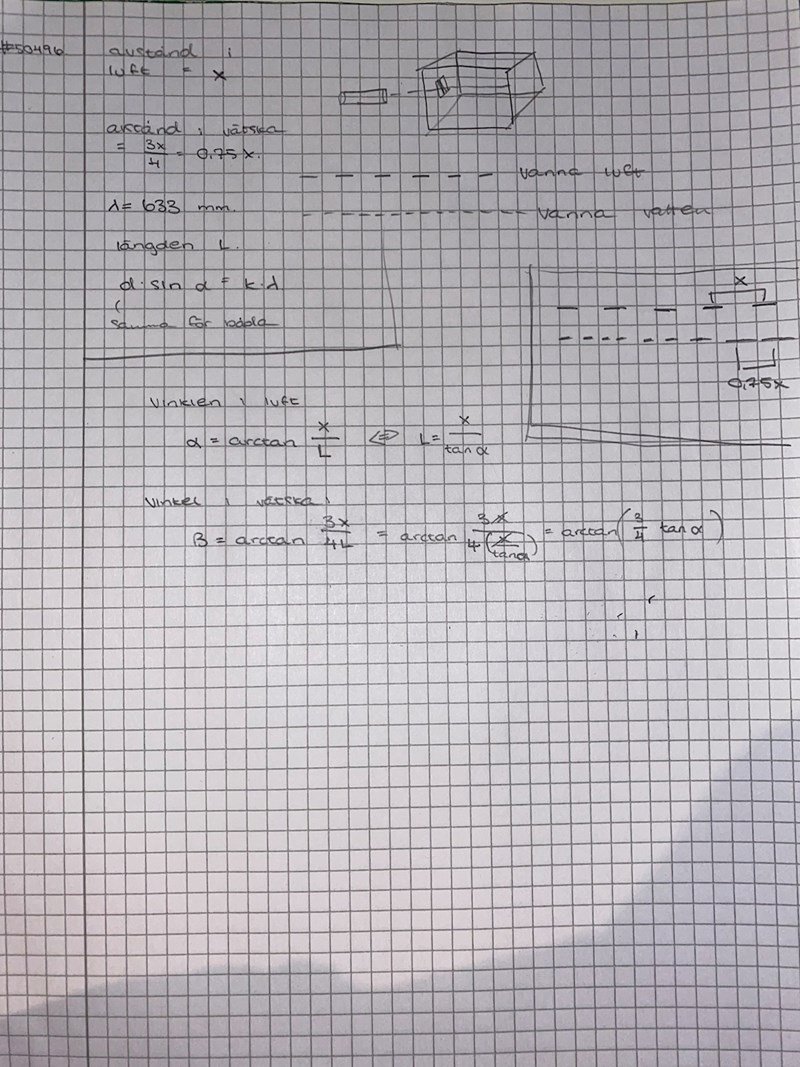 #50496
avstånd i
luft = x
avstånd i vätska
= 3x/4 = 0,75x.
vanna luft
λ = 633 mm.
vanna vatten
längden L.
d·sin α = k·λ
x
samma för båda
0,75x
Vinkeln i luft
α = arctan x/L ⇔ L = x/tan α
Vinkel i vätska i
β = arctan 3x/4L = arctan 3x/4(x/tanα) = arctan(3/4 tan α)